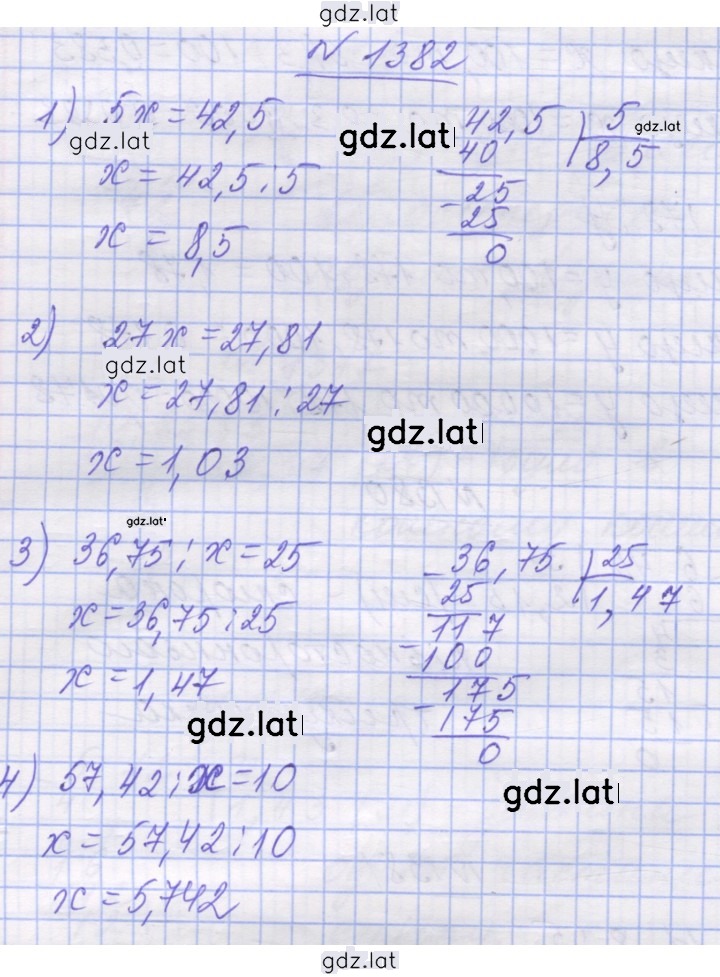 gdz.lat
№ 1382
1) 5x = 42,5
gdz.lat
x = 42,5 : 5
x = 8,5
gdz.lat
42,5 | 5
gdz.lat
40 8,5
25
- 25
0
2) 27x = 27,81
gdz.lat
x = 27,81 : 27
x = 1,03
gdz.lat
gdz.lat
3) 36,75 : x = 25
x = 36,75 : 25
x = 1,47
gdz.lat
- 36,75 | 25
25 1,47
117
- 100
175
- 175
0
gdz.lat
4) 57,42 : x = 10
x = 57,42 : 10
x = 5,742
gdz.lat